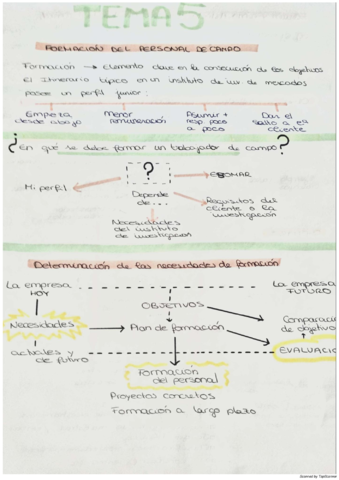 TEMA 5
FORMACIÓN DEL PERSONAL DE CAMPO
Formación → elemento clave en la consecución de los objetivos
El itinerario típico en un instituto de inv de mercados
posee un perfil junior:
Empieza desde abajo
Menor remuneración
Asumir + resp poco a poco
Dar el salto a
cliente
¿En qué se debe formar un trabajador de campo?
?
Mi perfil
Depende de...
ESOMAR
Requisitos del cliente o la investigación
Necesidades del instituto de investigación
Determinación de las necesidades de formación
La empresa HOY
La empresa FUTURO
OBJETIVOS
Necesidades
Plan de formación
Comparación de objetivos
actuales y de futuro
EVALUACI
Formación del personal
Proyectos concretos
Formación a largo plazo
Scanned by TapScanner